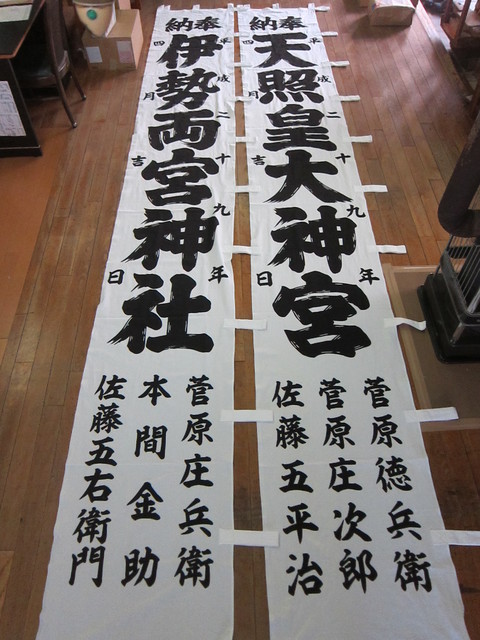 奉納
天照皇大神宮
平成二十九年
四月吉日
菅原徳兵衛
菅原庄次郎
佐藤五平治
奉納
伊勢両宮神社
平成二十九年
四月吉日
菅原庄兵衛
本間金助
佐藤五右衛門